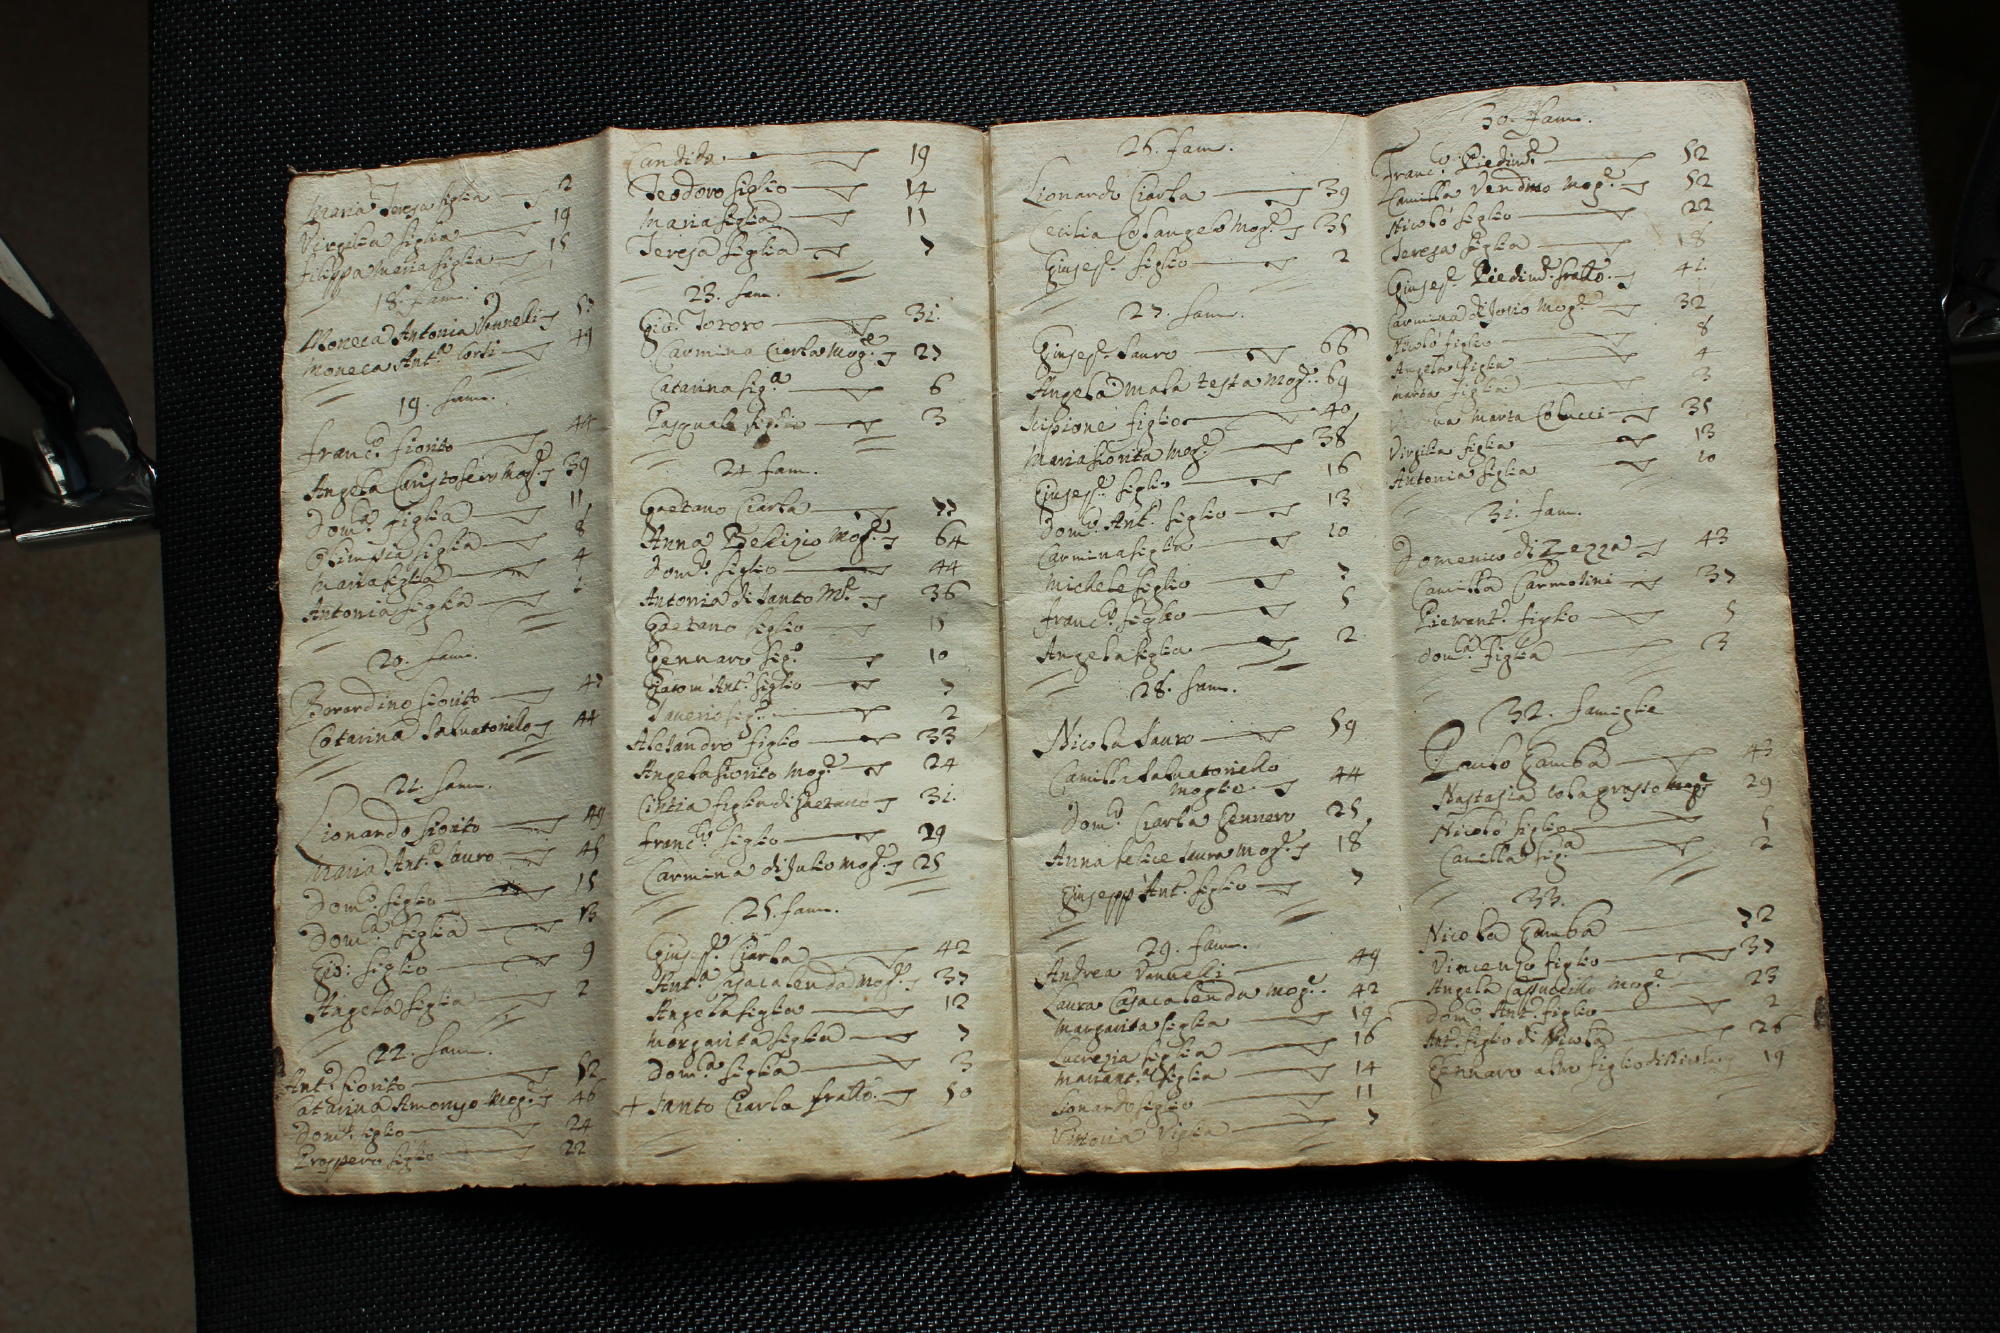 Maria Teresa figlia 2
Virgilia figlia 19
Filippa Maria figlia 15
18. fam.
Moneca Antonia Vannelli 57
Moneca Ant.a Corsi 49
19. fam.
Franc.o Fiorito 44
Angela Cristofero Mog.e 39
Dom.ca figlia 11
Olimpia figlia 8
Maria figlia 4
Antonia figlia
20. fam.
Berardino Fiorito 47
Catarina Salvatoriello 44
21. fam.
Lionardo Fiorito 49
Maria Ant.a Sauro 45
Dom.co figlio 15
Dom.ca figlia 13
Gio: figlio 9
Angela figlia 2
22. fam.
Ant.o Fiorito 52
Catarina Amoruso Mog.e 46
Dom.co figlio 24
Prospero figlio 22
Candita 19
Teodoro figlio 14
Maria figlia 11
Teresa figlia 7
23. fam.
Gio: Tororo 31.
Carmina Ciarla Mog.e 27
Catarina fig.a 6
Pasquale figlio 3
24 fam.
Gaetano Ciarla 77
Anna Belizio Mog.e 64
Dom.co figlio 44
Antonia di Santo M.e 36
Gaetano figlio 15
Gennaro fig.o 10
Giacom' Ant.o figlio 7
Saverio fig.o 2
Alesandro figlio 33
Angela Fiorito Mog.e 24
Cintia figlia di Gaetano 31.
Franc.o figlio 29
Carmina di Julio Mog.e 25
25. fam.
Giusep.e Ciarla 42
Ant.a Casacalenda Mog.e 37
Angela figlia 12
Margarita figlia 7
Dom.ca figlia 3
+ Santo Ciarla fratto. 50
26. fam.
Lionardo Ciarla 39
Cecilia Colangelo Mog.e 35
Giusep.e figlio 2
27. fam.
Giusep.e Sauro 66
Angela Mala testa Mog.e 69
Scipione figlio 40
Maria Fiorita Mog.e 38
Giusep.e figlio 16
Dom.co Ant.o figlio 13
Carmina figlia 10
Michele figlio 7
Franc.o figlio 5
Angela figlia 2
28. fam.
Nicola Sauro 59
Camilla Salvatoriello
moglie 44
Dom.co Ciarla Gennero 25
Anna Felice Saura Mog.e 18
Giusepp' Ant.o figlio 7
29. fam.
Andrea Vannelli 49
Laura Casacalenda Mog.e 42
Margarita figlia 19
Lucrezia figlia 16
Mariant.a figlia 14
Lionardo figlio 11
Vittoria figlia 7
30. fam.
Franc.o Piedim.e 52
Camilla Venditto Mog.e 52
Nicolò figlio 22
Teresa figlia 18
Giusep.e Piedim.e fratto. 41.
Carmina di Iorio Mog.e 32
Nicolò figlio 8
Angela figlia 4
Marta figlia 3
Vedova Marta Colucci 35
Virgilia figlia 13
Antonia figlia 10
31. fam.
Domenico di Zezza 43
Camilla Carmolini 37
Pierant.o figlio 5
Dom.ca figlia 3
32. famiglie
Paulo Gamba 43
Nastasia Colagrosso Mog.e 29
Nicolò figlio 5
Camilla fig.a 2
33.
Nicola Gamba 72
Vincenzo figlio 37
Angela Cappuccilli Mog.e 23
Dom.co Ant.o figlio 2
Ant.o figlio di Nicola 26
Gennaro altro figlio di Nicola 19